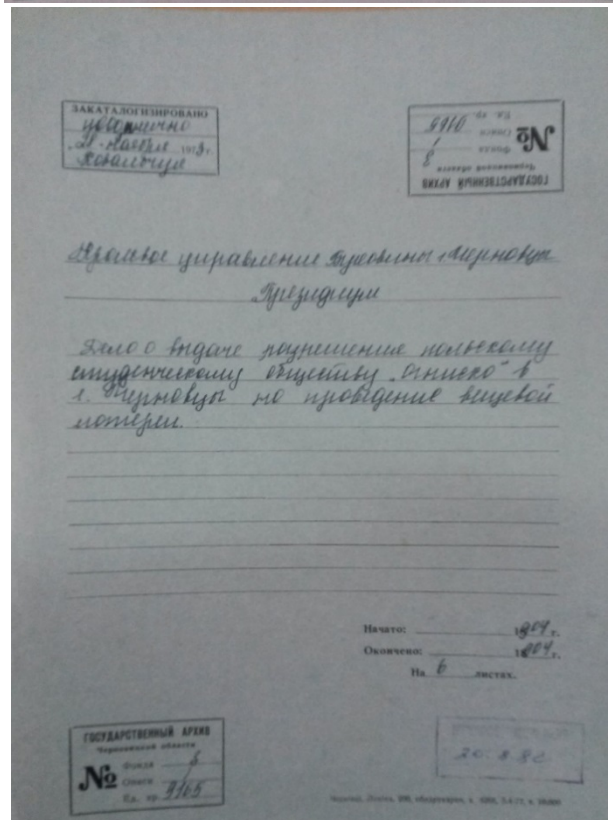 ЗАКАТАЛОГИЗИРОВАНО
ноября 197 г.
Ковальчук
ГОСУДАРСТВЕННЫЙ АРХИВ
Черновицкой области
№ Фонда 3
Описи 1
Ед. хр. 9165
Краевое управление Буковины г. Черновцы
Президиум
Дело о выдаче разрешения польскому
студенческому обществу „Огниско" в
г. Черновцы на проведение вещевой
лотереи.
Начато: 1904 г.
Окончено: 1904 г.
На 6 листах.
ГОСУДАРСТВЕННЫЙ АРХИВ
Черновицкой области
№ Фонда 3
Описи 1
Ед. хр. 9165